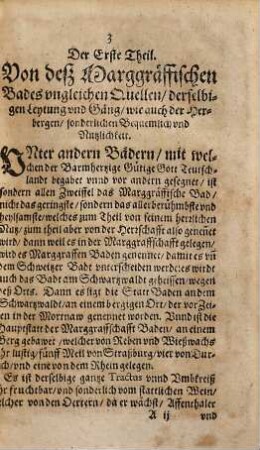 3
Der Erste Theil.
Von deß Marggräffischen
Bades vngleichen Quellen / derselbi-
gen Leytung vnd Gäng / wie auch der Her-
bergen / sonderlichen Bequemlich vnd
Nutzlichkeit.
VNter andern Bädern / mit wel-
chen der Barmhertzig Gütige Gott Teutsch-
landt begabet vnnd vor andern gesegnet / ist
sondern allen Zweiffel das Marggräffische Bad /
nich das geringste / sondern das allerberühmbste vnd
heylsamste / welches zum Theil von seinem herrlichen
Nutz / zum theil aber von der Herrschafft also genenet
wird / dann weil es in der Marggrafschafft gelegen /
wird es Marggraffen Baden genennet / damit es võ
dem Schweitzer Bade vnterscheiden werde: es wirdt
auch das Bad am Schwartzwald geheissen wegen
deß Orts. Dann es ligt die Statt Baden an dem
Schwartzwald / an einem bergigten Ort / der vor Zei-
ten in der Mortnaw genennet worden. Vnnd ist die
Hauptstatt der Marggraffschafft Baden / an einem
Berg gebawet / welcher von Reben vnd Wießwachs
hr lustig / fünff Meil von Straßburg / vier von Dur-
ch / vnd eine von dem Rhein gelegen.
Es ist derselbige gantze Tractus vnnd Vmbkreiß
hr fruchtbar / vnd sonderlich vom stattlichen Wein /
elcher von den Oertern / da er wächst / Affenthaler
A ij vnd